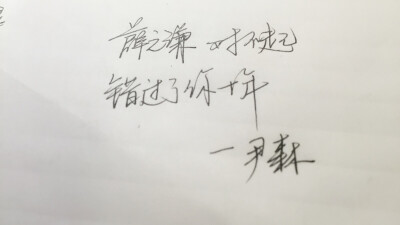 薛之谦 对不起
错过了你十年
一尹森林